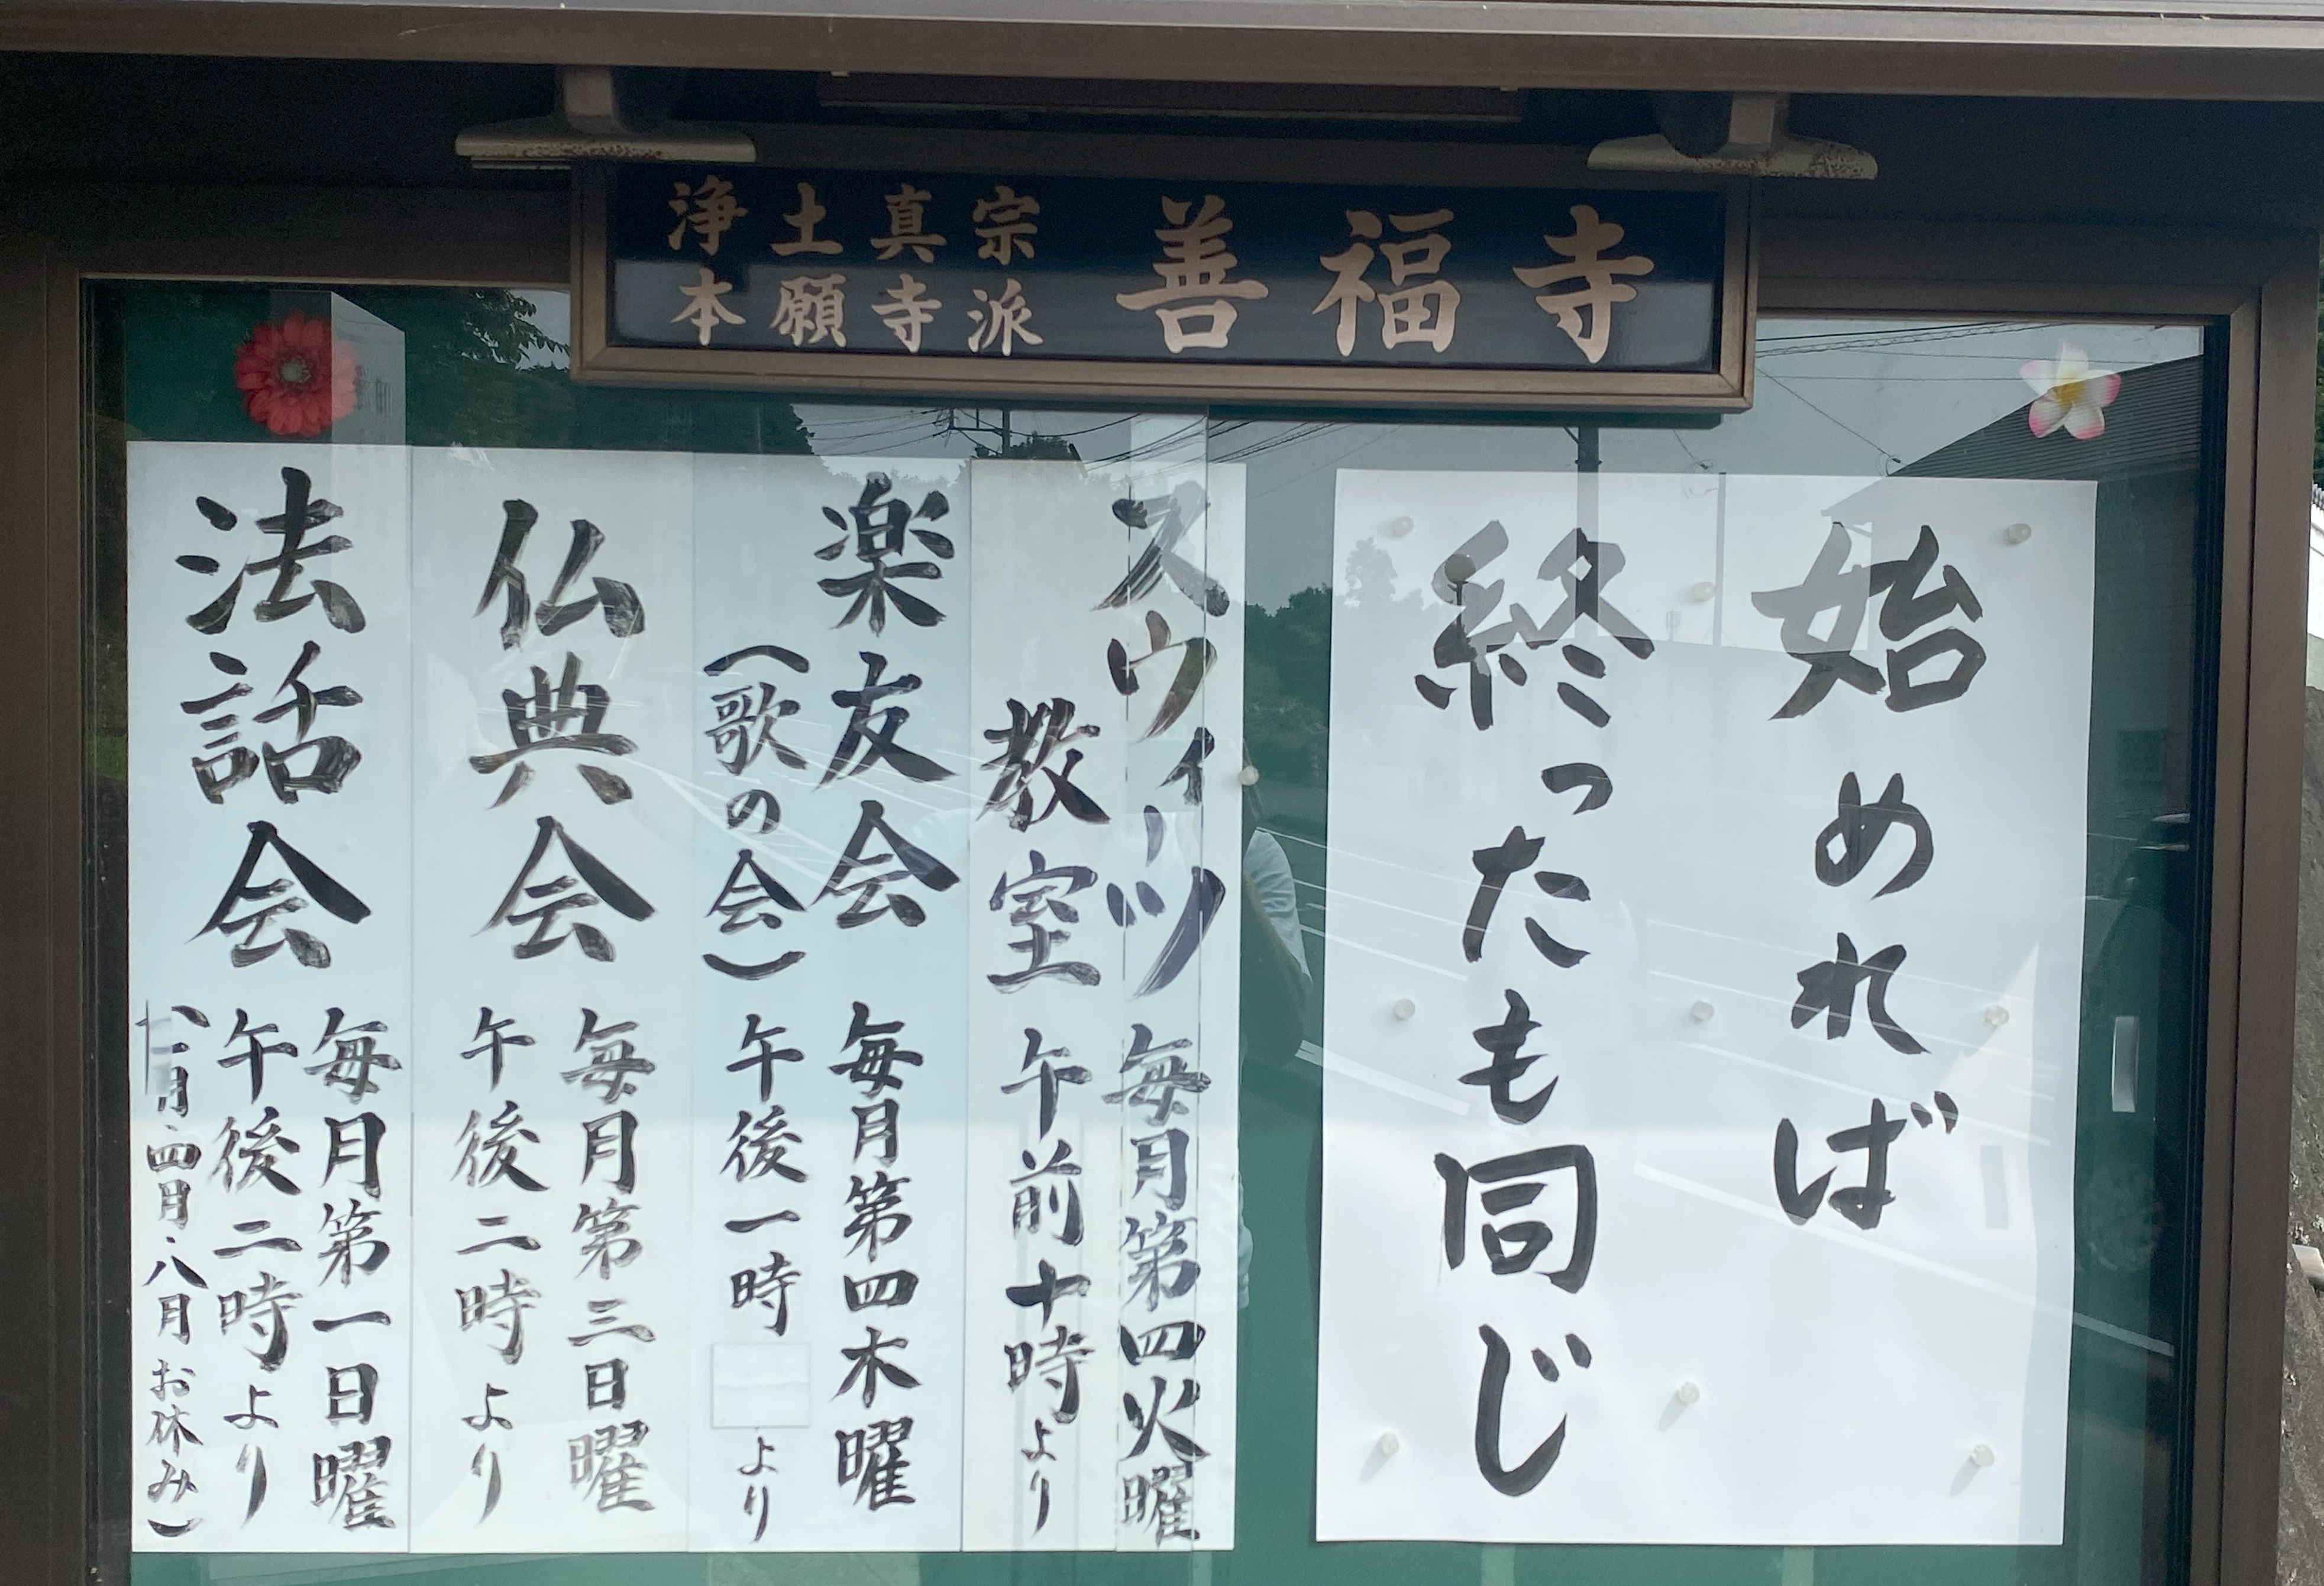 浄土真宗
本願寺派
善福寺
始めれば
終ったも同じ
スウィーツ
教室
毎月第四火曜
午前十時より
楽友会
(歌の会)
毎月第四木曜
午後一時
より
仏典会
毎月第三日曜
午後二時より
法話会
毎月第一日曜
午後二時より
月・四月・八月お休み)